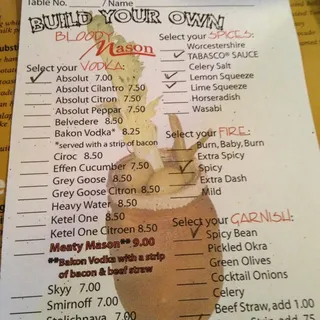 Table No. / Name
BUILD YOUR OWN
BLOODY Mason
Select your VODKA:
Absolut 7.00
Absolut Cilantro 7.50
Absolut Citron 7.50
Absolut Peppar 7.50
Belvedere 8.50
Bakon Vodka* 8.25
*served with a strip of bacon
Ciroc 8.50
Effen Cucumber 7.50
Grey Goose 8.50
Grey Goose Citron 8.50
Heavy Water 8.50
Ketel One 8.50
Ketel One Citroen 8.50
Meaty Mason** 9.00
**Bakon Vodka with a strip
of bacon & beef straw
Skyy 7.00
Smirnoff 7.00
Stolichnaya 7.00
Select your SPICES:
Worcestershire
TABASCO® SAUCE
Celery Salt
Lemon Squeeze
Lime Squeeze
Horseradish
Wasabi
Select your FIRE:
Burn, Baby, Burn
Extra Spicy
Spicy
Extra Dash
Mild
Select your GARNISH:
Spicy Bean
Pickled Okra
Green Olives
Cocktail Onions
Celery
Beef Straw, add 1.00